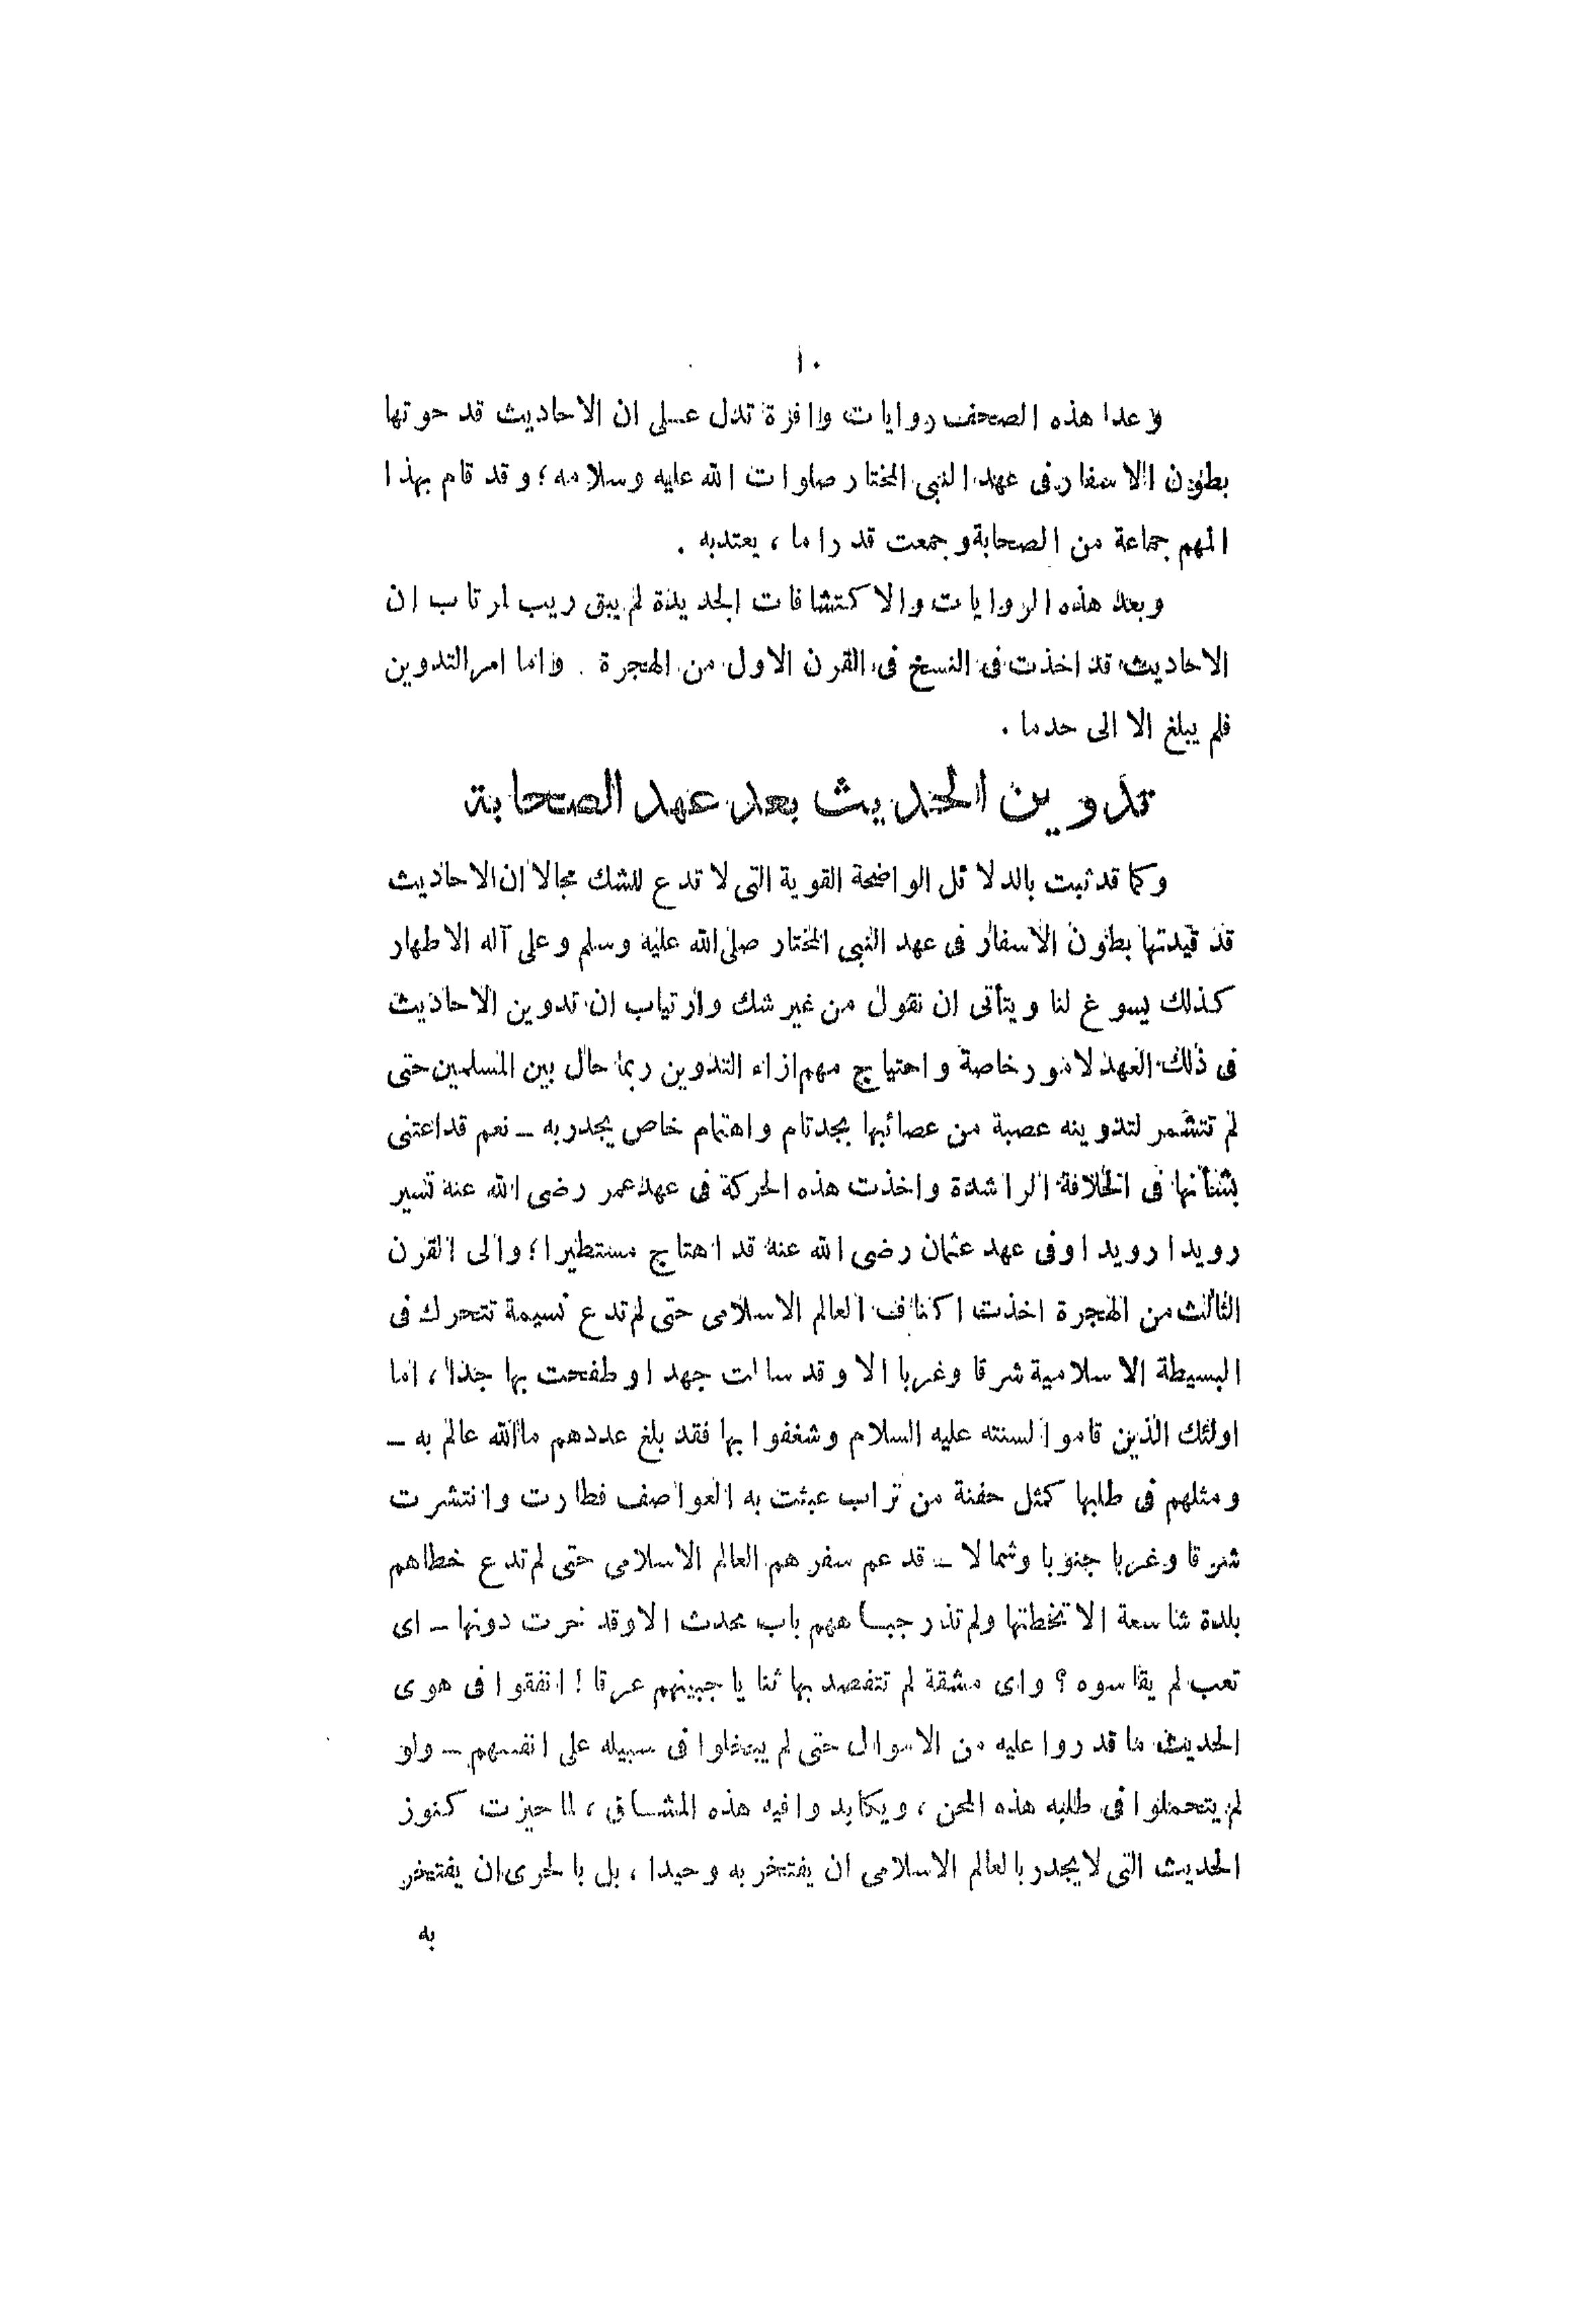 ١٠
وعدا هذه الصحف روايات وافرة تدل على ان الاحاديث قد حوتها
بطون الاسفار فى عهد النبى المختار صلوات الله عليه وسلامه؛ وقد قام بهذا
المهم جماعة من الصحابة وجمعت قدراما، يعتدبه .
وبعد هذه الروايات والاكتشافات الجديدة لم يبق ريب لمرتاب ان
الاحاديث قد اخذت فى النسخ فى القرن الاول من الهجرة . واما امر التدوين
فلم يبلغ الا الى حدما .
تدوين الحديث بعد عهد الصحابة
وكما قد ثبت بالدلائل الواضحة القوية التى لا تدع للشك مجالا ان الاحاديث
قد قيدتها بطون الاسفار فى عهد النبى المختار صلى الله عليه وسلم وعلى آله الاطهار
كذلك يسوغ لنا ويتأتى ان نقول من غير شك وارتياب ان تدوين الاحاديث
فى ذلك العهد لامور خاصة واحتياج مهم ازاء التدوين ربما حال بين المسلمين حتى
لم تتشمر لتدوينه عصبة من عصائبها بجد تام واهتمام خاص يجدر به ــ نعم قد اعتنى
بشأنها فى الخلافة الراشدة واخذت هذه الحركة فى عهد عمر رضى الله عنه تسير
رويدا رويدا وفى عهد عثمان رضى الله عنه قد اهتاج مستطيرا؛ والى القرن
الثالث من الهجرة اخذت اكناف العالم الاسلامى حتى لم تدع نسيمة تتحرك فى
البسيطة الاسلامية شرقا وغربا الا وقد سالت جهدا وطفحت بها جدا، اما
اولئك الذين قاموا لسنته عليه السلام وشغفوا بها فقد بلغ عددهم ما الله عالم به ــ
ومثلهم فى طلبها كمثل حفنة من تراب عبثت به العواصف فطارت وانتشرت
شرقا وغربا جنوبا وشمالا ــ قد عم سفرهم العالم الاسلامى حتى لم تدع خطاهم
بلدة شاسعة الا تخطتها ولم تذر جباههم باب محدث الا وقد خرت دونها ــ اى
تعب لم يقاسوه ؟ واى مشقة لم تتفصد بها ثنايا جبينهم عرقا ! انفقوا فى هوى
الحديث ما قدروا عليه من الاموال حتى لم يبخلوا فى سبيله على انفسهم ــ ولو
لم يتحملوا فى طلبه هذه المحن ، ويكابدوا فيه هذه المشاق ، لما حيزت كنوز
الحديث التى لا يجدر بالعالم الاسلامى ان يفتخر به وحيدا ، بل بالحرى ان يفتخر
به